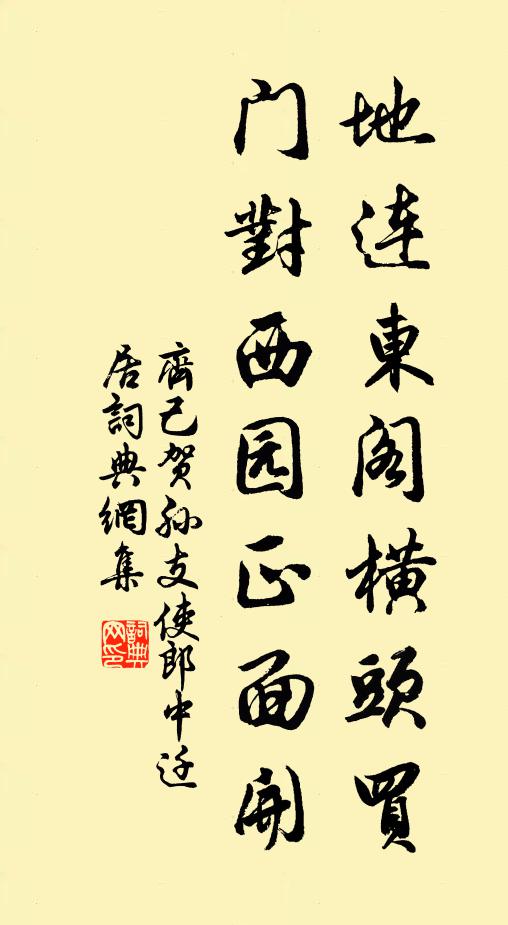 地連東阁橫頭買
门對西园正面開
齊己贺孙支使郎中迁
居詞典網集
詞典
网印